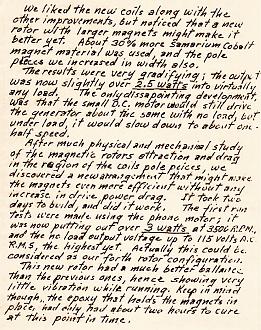 We liked the new coils along with the
other improvements, but noticed that a new
rotor with larger magnets might make it
better yet. About 30% more samarium cobolt
magnet material was used, and the pole
pieces we increased in width also.
The results were very gradifying; the output
was now slightly over 2.5 watts into virtually
any load. The only disappointing development
was that the small D.C. motor would still drive
the generator about the same with no load, but
under load, it would slow down to about one-
half speed.
After much physical and mechanical study
of the magnetic rotors attraction and drag
in the region of the coil pole peices, we
discovered a new arrangement that might make
the magnets even more efficient without any
increase in drive power drag. It took two
days to build, and did it work. The first run
test were made using the phono motor; it
was now putting out over 3 watts at 3500 R.P.M.,
and the no load output voltage up to 115 volts A.C.
R.M.S, the highest yet. Actually this could be
considered as our forth rotor configuration.
This new rotor had a much better ballance
than the previous ones, hence showing very
little vibration while running. Keep in mind
though, the epoxy that holds the magnets in
place, had only had about two hours to cure
at this point in time.